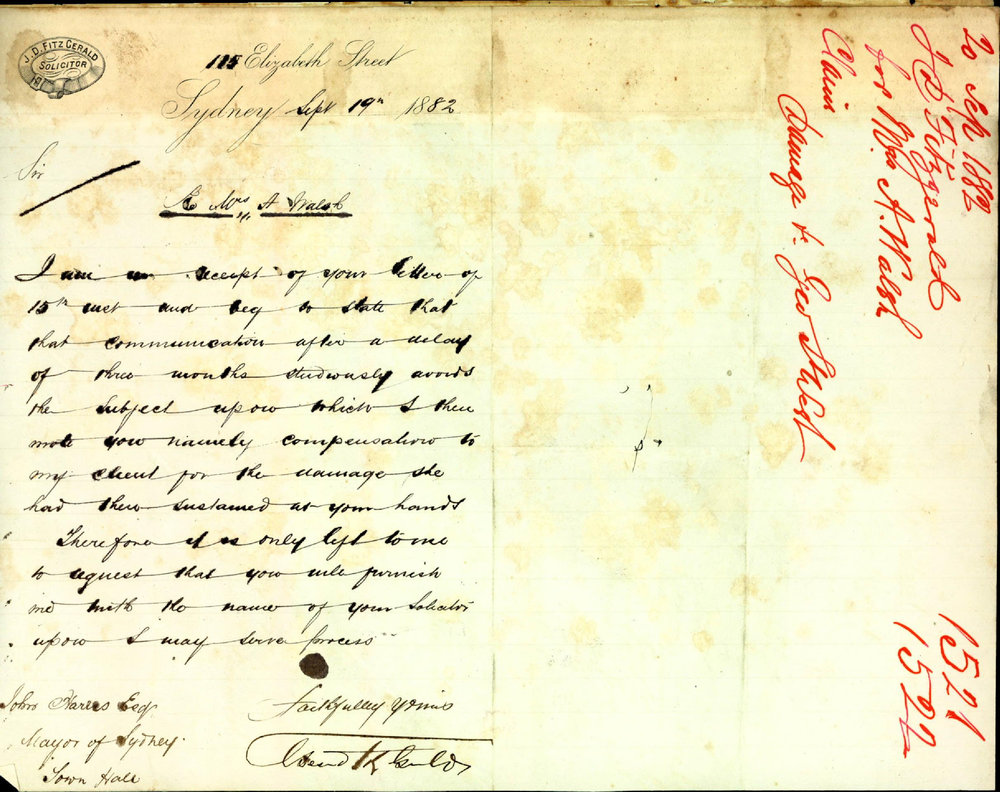 J. D. FITZ GERALD
SOLICITOR
115 Elizabeth Street
Sydney Sept 19th 1882
Sir
Re Mrs A Walsh
I am in receipt of your letter of
15th inst and beg to state that
that communication after a delay
of three months studiously avoids
the subject upon which I then
wrote you namely compensation to
my client for the damage she
had then sustained at your hands
Therefore it is only left to me
to request that you will furnish
me with the name of your Solicitor
upon I may serve process
Faithfully Yours
John Harris Esq
Mayor of Sydney
Town Hall
20 Sep 1882
J D Fitzgerald
for Mrs A. Walsh
Claim
Damage &c Geo St West
1521
1522